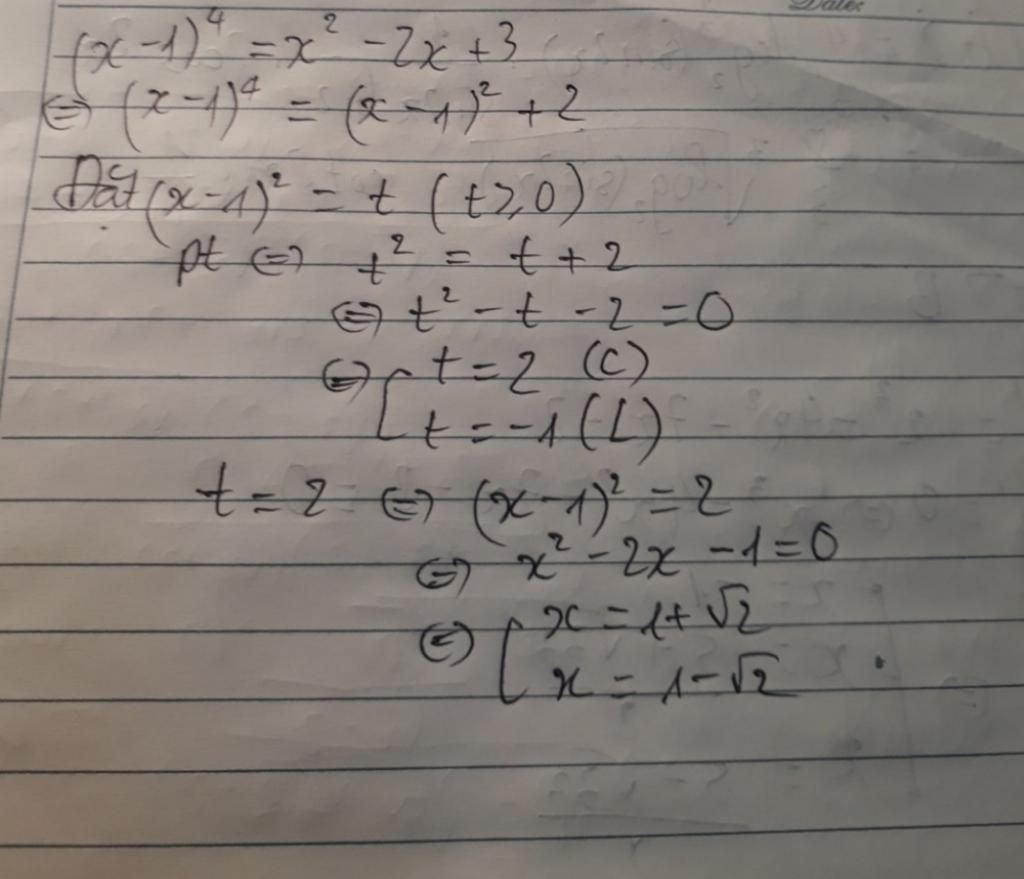 Date:
(x-1)⁴ = x² - 2x + 3
⇔ (x-1)⁴ = (x-1)² + 2
Đặt (x-1)² = t (t≥0)
pt ⇔ t² = t + 2
⇔ t² - t - 2 = 0
⇔ [ t = 2 (C)
t = -1 (L)
t = 2 ⇔ (x-1)² = 2
⇔ x² - 2x - 1 = 0
⇔ [ x = 1 + √2
x = 1 - √2